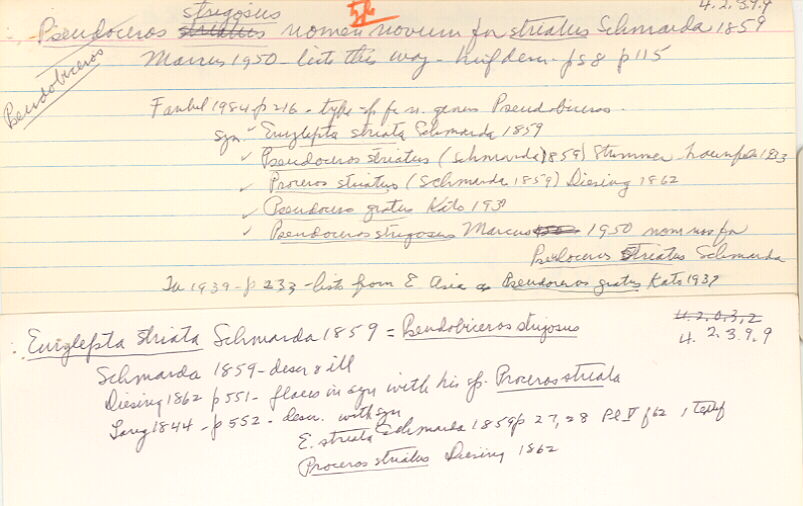 strigosus 5th 4.2.3.9.9
Pseudoceros striatus nomen novum for striatus Schmarda 1859
Pseudobiceros
Marcus 1950 - lists this way - p 58 p 115
Faubel 1984 p 216 - type sp for n. genus Pseudobiceros.
syn ✓ Eurylepta striata Schmarda 1859
✓ Pseudoceros striatus (Schmarda 1859) Stummer
✓ Proceros striatus (Schmarda 1859) Diesing 1862
✓ Pseudoceros gratus Kato 1937
✓ Pseudoceros strigosus Marcus 1950 nom nov for
Pseudoceros Striatus Schmarda
1939 - p 233 - lists from E Asia as Pseudoceros gratus Kato 1937
4.2.0.3.2
∴ Eurylepta striata Schmarda 1859 = Pseudobiceros strigosus
4.2.3.9.9
Schmarda 1859 - descr & ill
Diesing 1862 p 551 - places in syn with his sp. Proceros striata
Lang 1844 - p 552 - descr. with syn
E. striata Schmarda 1859 p 27, 28 Pl V f 62
Proceros striatus Diesing 1862